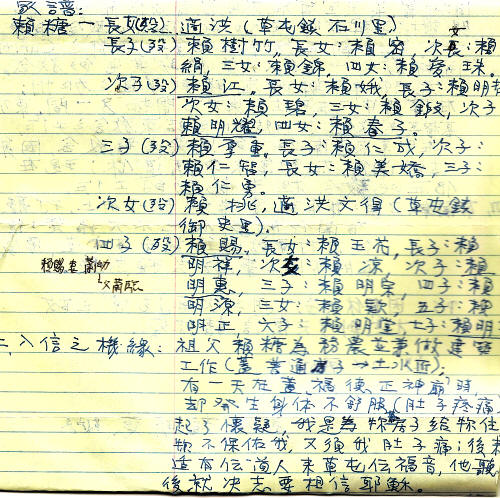 敬譜:
賴糖一長女(歿)適洪(草屯鎮石川里)
長子(歿)賴樹竹,長女:賴密,次女:賴
絹,三女:賴錦,四女:賴麥·珠。
次子(歿)賴江。長女:賴娥,長子:賴明
次女:賴碧,三女:賴,次子
賴明耀,四女:賴春子。
三子(歿)賴重,長子:賴仁成,次子:
賴仁智,長女:賴美嬌,三子:
賴仁勇。
次女(歿)賴桃,適洪文得(草屯鎮
御史里)。
四子(歿)賴賜,長女:賴玉,長子:賴
明祥,次女:賴涼,次子:賴
明惠,三子:賴明宗 四子:賴
明源,三女:賴歎,五子:賴
明正 六子:賴明堂 七子:賴明
賴賜妻 蕭
父蕭
二、入信之機緣:祖父賴糖為務農並兼做建築
工作(蓋普通房子→土水匠)
有一天在蓋福德正神廟時
却發生身体不舒服(肚子疼痛
起了懷疑,我是為你房子給你住
你不保佑我,又須我肚子痛;後來
適有伝道人來草屯伝福音,他聽
後就決志要相信耶穌。